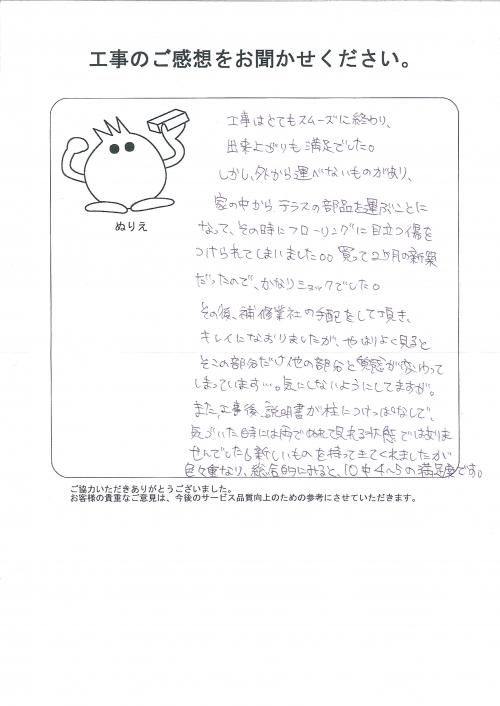 工事のご感想をお聞かせください。
工事はとてもスムーズに終わり、
出来上がりも満足でした。
しかし、外から運べないものがあり、
家の中からテラスの部品を運ぶことに
なって、その時にフローリングに目立つ傷を
つけられてしまいました。。買って2ヶ月の新築
だったので、かなりショックでした。
その後、補修業社の手配をして頂き、
キレイになおりましたが、やはりよく見ると
そこの部分だけ他の部分と質感が変わって
しまっています…。気にしないようにしてますが。
また、工事後、説明書が柱につけっぱなしで、
気づいた時には雨でぬれて見れる状態ではありま
せんでした。新しいものを持ってきてくれましたが
色々重なり、総合的にみると、10中4~5の満足度です。
ぬりえ
ご協力いただきありがとうございました。
お客様の貴重なご意見は、今後のサービス品質向上のための参考にさせていただきます。